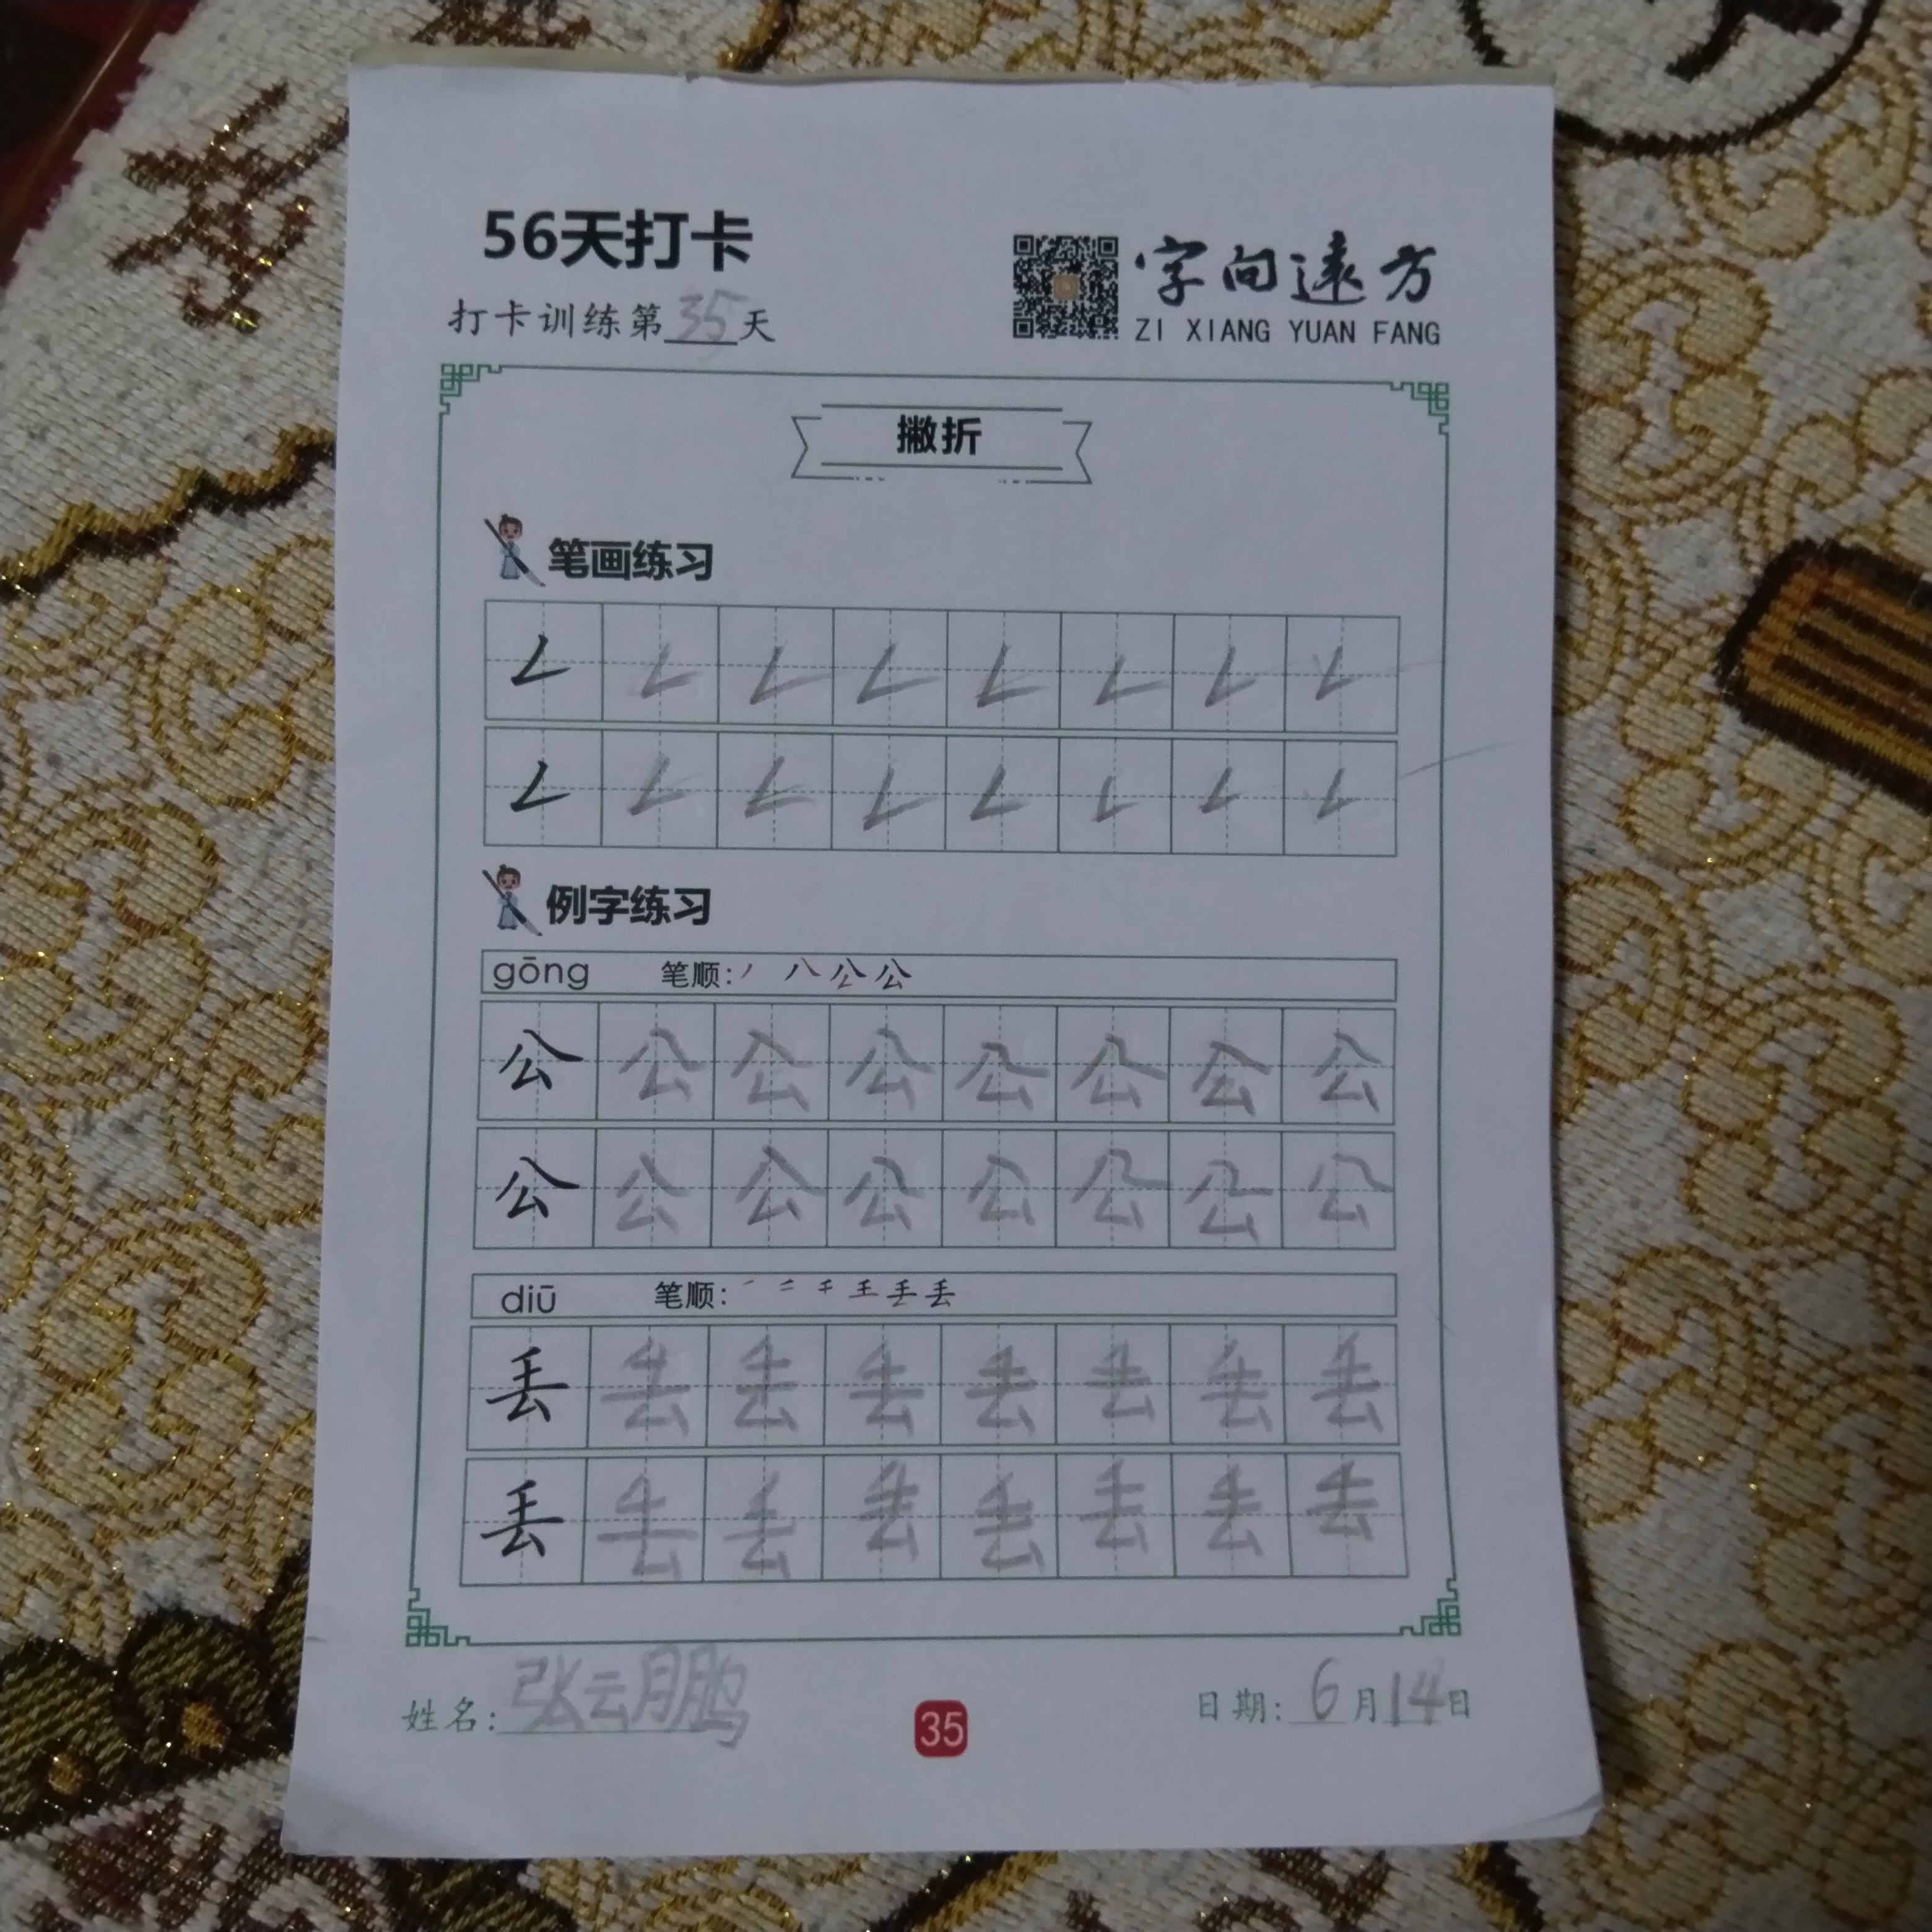 56天打卡
打卡训练第35天
字向遠方
ZI XIANG YUAN FANG
撇折
笔画练习
例字练习
gōng 笔顺:丿 八 公 公
公 公 公 公 公 公 公 公
公 公 公 公 公 公 公 公
diū 笔顺: 一 二 千 王 丢 丢
丢 丢 丢 丢 丢 丢 丢 丢
丢 丢 丢 丢 丢 丢 丢 丢
姓名:张云鹏
35
日期: 6月14日